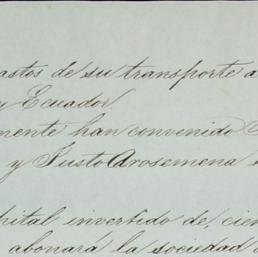 astos de su transporte a
y Ecuador.
mente han convenido
y Justo Arosemena
pital invertido de, cien
abonará la sociedad